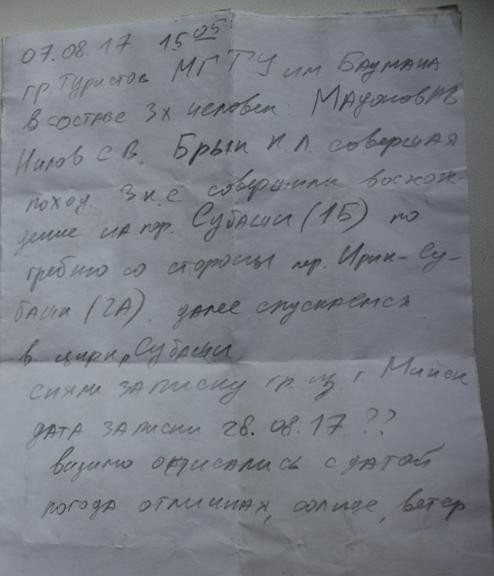 07.08.17 15 05
гр. Туристов МГТУ им Баумана
в составе 3х человек
Нилов С В, Брык К Л совершая
поход 3 к.с совершили восхож-
дение на пер. Субаши (1Б) по
гребню со стороны пер. Ирик-Су-
баши (2А). далее спускаемся
в цирк, Субаши
сняли записку гр из г. Минск
дата записки 28.08.17 ??
видимо описались с датой
погода отличная, солнце, ветер